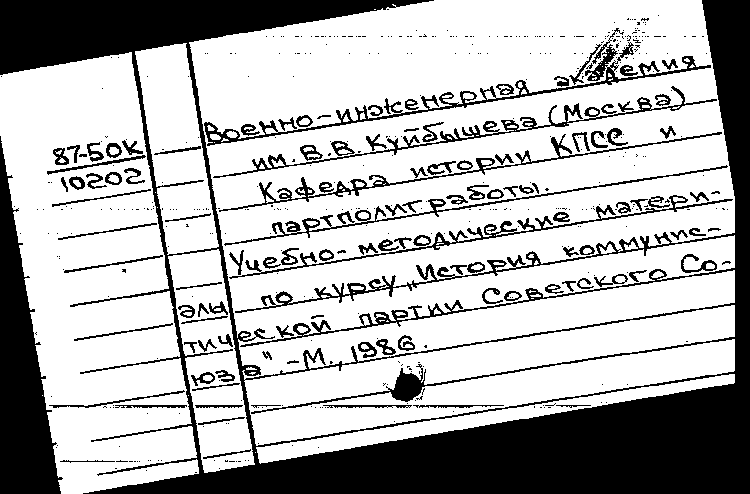 87-50К
10202
Военно-инженерная академия
им. В.В. Куйбышева (Москва)
Кафедра истории КПСС и
партполитработы.
Учебно-методические матери-
алы по курсу „История коммунис-
тической партии Советского Со-
юза". -М., 1986.